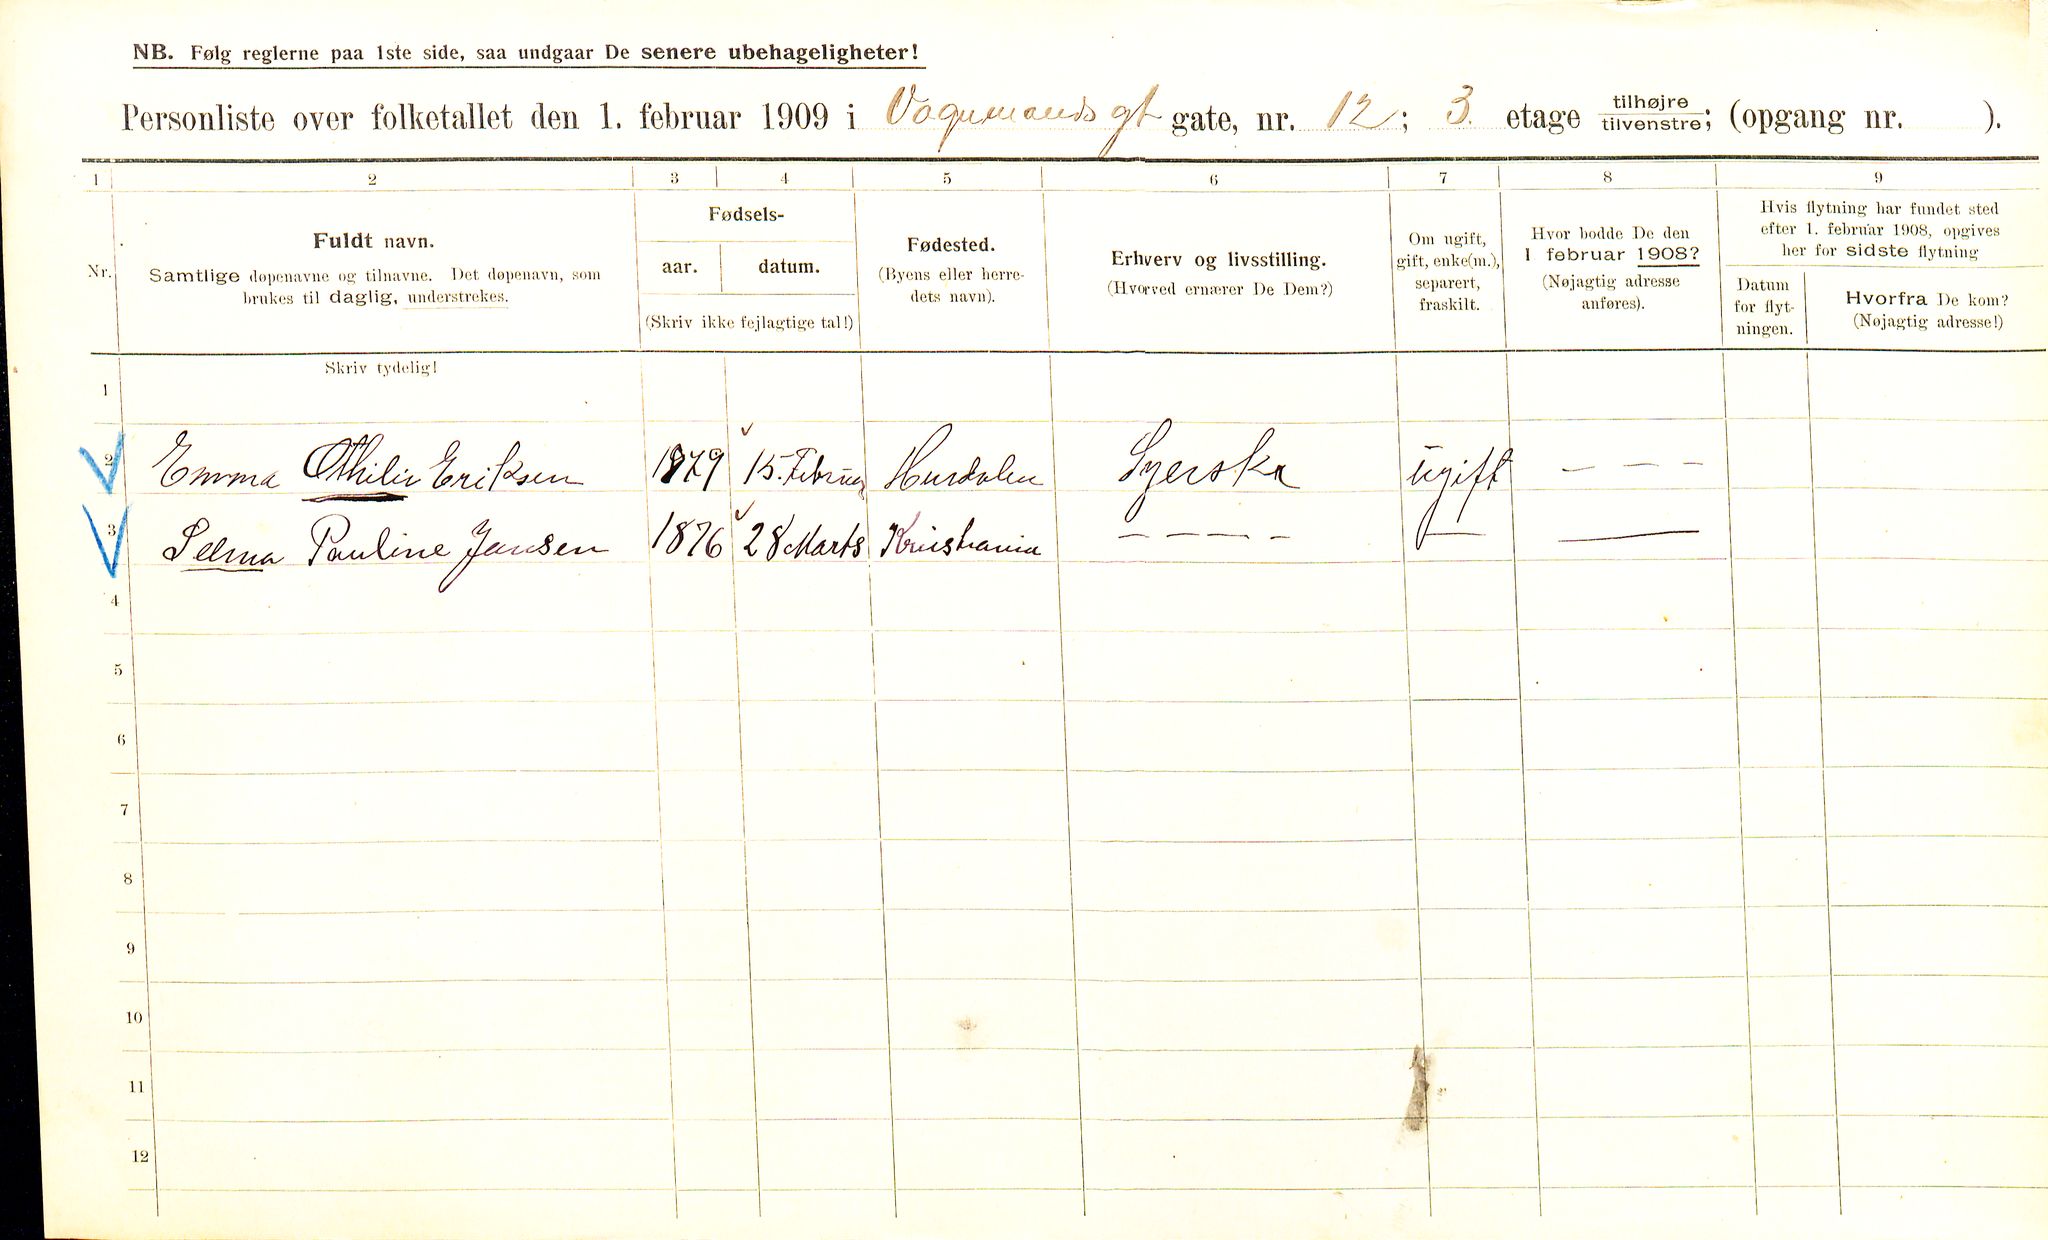 NB. Følg reglerne paa 1ste side, saa undgaar De senere ubehageligheter!
Personliste over folketallet den 1. februar 1909 i Vognmands gt gate, nr. 12; 3. etage tilhøjre/tilvenstre; (opgang nr. ).
1 2 3 4 5 6 7 8 9
Nr.
Fuldt navn.
Samtlige døpenavne og tilnavne. Det døpenavn, som
brukes til daglig, understrekes.
Fødsels-
aar. datum.
(Skriv ikke fejlagtige tal!)
Fødested.
(Byens eller herre-
dets navn).
Erhverv og livsstilling.
(Hvorved ernærer De Dem?)
Om ugift,
gift, enke(m.),
separert,
fraskilt.
Hvor bodde De den
1 februar 1908?
(Nøjagtig adresse
anføres).
Hvis flytning har fundet sted
efter 1. februar 1908, opgives
her for sidste flytning
Datum
for flyt-
ningen.
Hvorfra De kom?
(Nøjagtig adresse!)
Skriv tydelig!
1
2 Emma Othilie Eriksen 1879 15. Februar Hurdalen Syerske ugift – – –
3 Selma Pauline Jansen 1876 28 Marts Kristiania – – – – — —
4
5
6
7
8
9
10
11
12